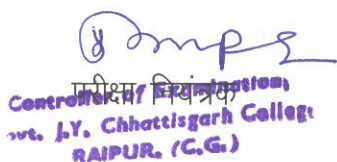 परीक्षा नियंत्रक
Controller of Examination,
Govt. J.Y. Chhattisgarh College
RAIPUR, (C.G.)